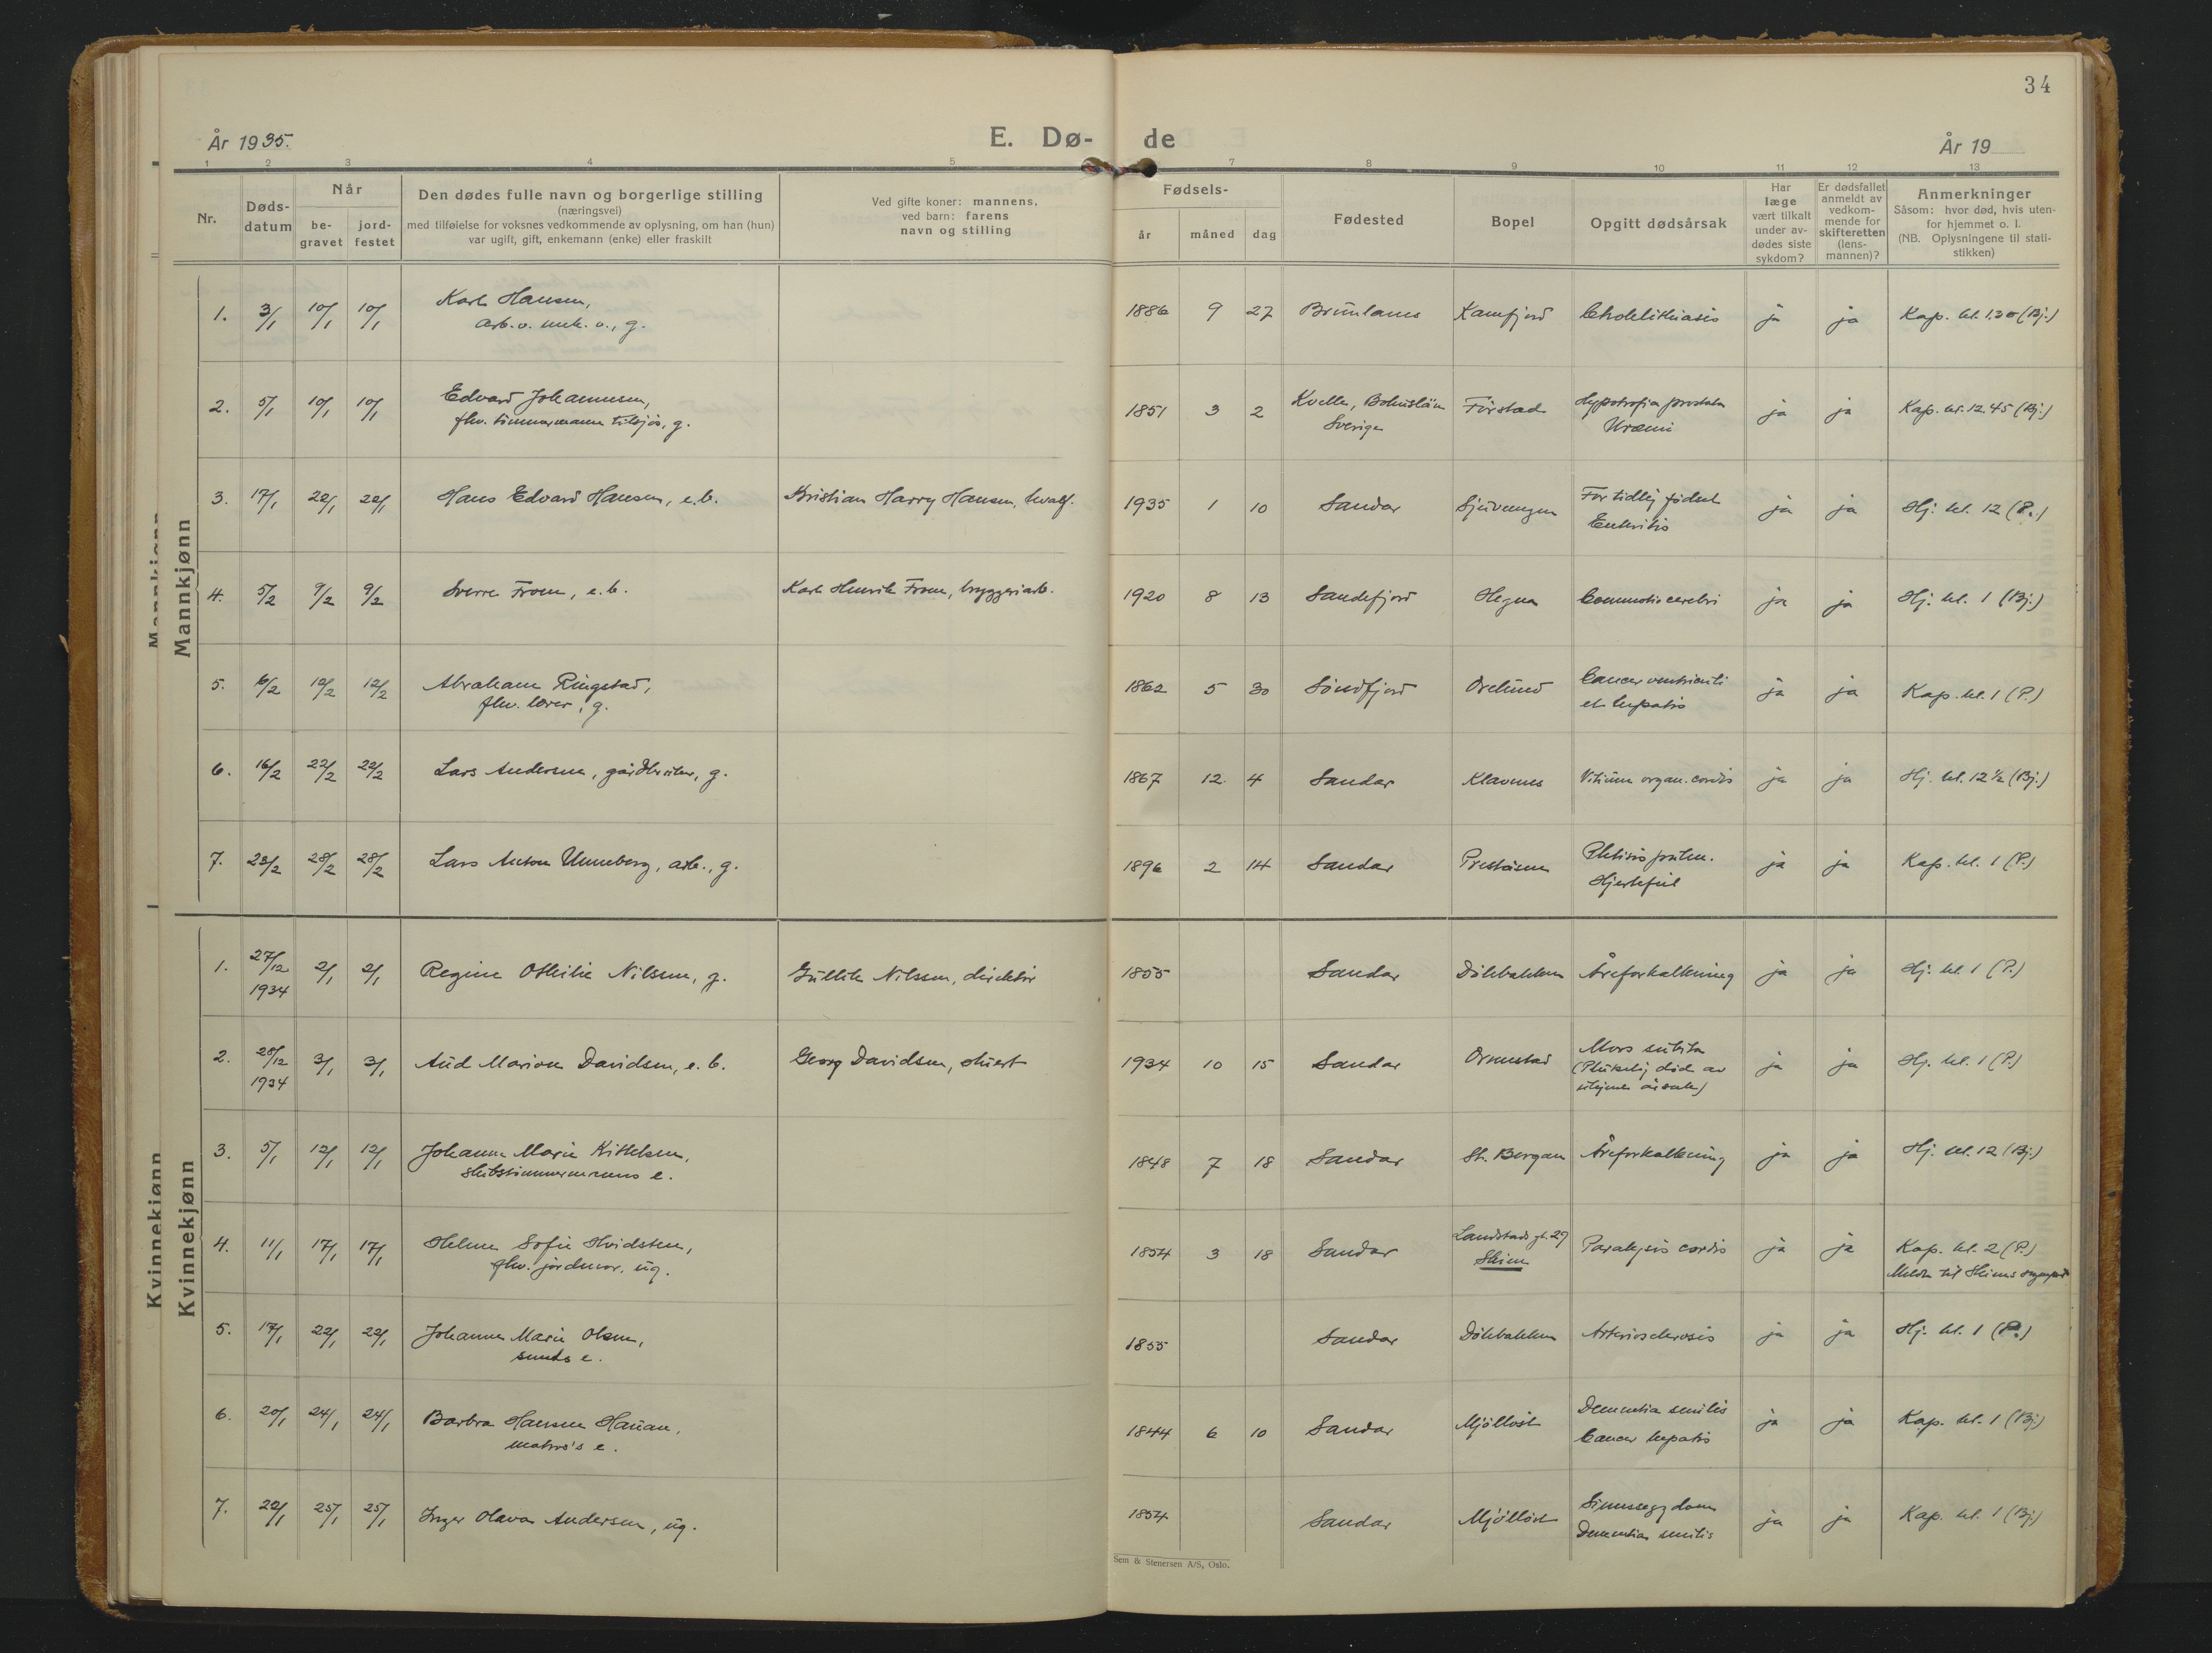 34
År 1935. E. Dø- de År 19
1 2 3 4 5 7 8 9 10 11 12 13
Nr. Døds-datum Når be-gravet jord-festet Den dødes fulle navn og borgerlige stilling (næringsvei) med tilføielse for voksnes vedkommende av oplysning, om han (hun) var ugift, gift, enkemann (enke) eller fraskilt Ved gifte koner: mannens, ved barn: farens navn og stilling Fødsels- år måned dag Fødested Bopel Opgitt dødsårsak Har læge vært tilkalt under av-dødes siste sykdom? Er dødsfallet anmeldt av vedkom-mende for skifteretten (lens-mannen)? Anmerkninger Såsom: hvor død, hvis uten-for hjemmet o. l. (NB. Oplysningene til stati-stikken)
Mannkjønn
1. 3/1 10/1 10/1 Karl Hansen, 1886 9 27 Brunlanes Kamfjord Cholelithiasis ja ja Kap. kl. 1.30 (Bj.)
arb. v. mek. v., g.
2. 5/1 10/1 10/1 Edvard Johannesen, 1851 3 2 Kville, Bohuslän Förstad Hypotrofia prostata ja ja Kap. kl. 12.45 (Bj.)
fhv. timmermann tilsjös, g. Sverige Uræmi
3. 17/1 22/1 22/1 Hans Edvard Hansen, e.b. Kristian Harry Hansen, hvalf. 1935 1 10 Sandar For tidlig födsel ja ja Hj. kl. 12 (P.)
Enteritis
4. 5/2 9/2 9/2 Sverre From, e.b. Karl Henrik From, bryggeriarb. 1920 8 13 Sandefjord Hegna Commotio cerebri ja ja Hj. kl. 1 (Bj.)
5. 6/2 12/2 12/2 Abraham Ringstad, 1862 5 30 Söndfjord Orelund Cancer ventriculi ja ja Kap. kl. 1 (P.)
fhv. lærer, g. et hepatis
6. 16/2 22/2 22/2 Lars Andersen, gårdbruker, g. 1867 12 4 Sandar Klavenes Vitium organ. cordis ja ja Hj. kl. 12½ (Bj.)
7. 23/2 28/2 28/2 Lars Anton Unneberg, arb., g. 1896 2 14 Sandar Preståsen Phtisis pulm. ja ja Kap. kl. 1 (P.)
Hjertefeil
Kvinnekjønn
1. 27/12 1934 2/1 2/1 Regine Othilie Nilsen, g. Gullik Nilsen, direktör 1855 Sandar Dölebakken Åreforkalkning ja ja Hj. kl. 1 (P.)
2. 28/12 1934 3/1 3/1 Aud Marion Davidsen, e.b. Georg Davidsen, stuert 1934 10 15 Sandar Ormestad Mors subita ja ja Hj. kl. 1 (P.)
(Plutselig död av
ukjent årsak)
3. 5/1 12/1 12/1 Johanne Marie Kittelsen, 1848 7 18 Sandar St. Bergan Åreforkalkning ja ja Hj. kl. 12 (Bj.)
skibstimmermanns e.
4. 11/1 17/1 17/1 Helene Sofie Hvidsten, 1854 3 18 Sandar Landstads gt. 27 Paralysis cordis ja ja Kap. kl. 2 (P.)
fhv. jordmor, ug. Skien Meldt til Skiens sognepr.
5. 17/1 22/1 22/1 Johanne Marie Olsen, 1855 Sandar Dölebakken Arteriosclerosis ja ja Hj. kl. 1 (P.)
smeds e.
6. 20/1 24/1 24/1 Barbra Hansen Hauan, 1844 6 10 Sandar Mjöllöst Dementia senilis ja ja Kap. kl. 1 (Bj)
matros's e. Cancer hepatis
7. 22/1 25/1 25/1 Inger Olava Andersen, ug. 1854 Sandar Mjöllöst Sinnssygdom ja ja Kap. kl. 1 (Bj)
Dementia senilis
Sem & Stenersen A/S, Oslo.